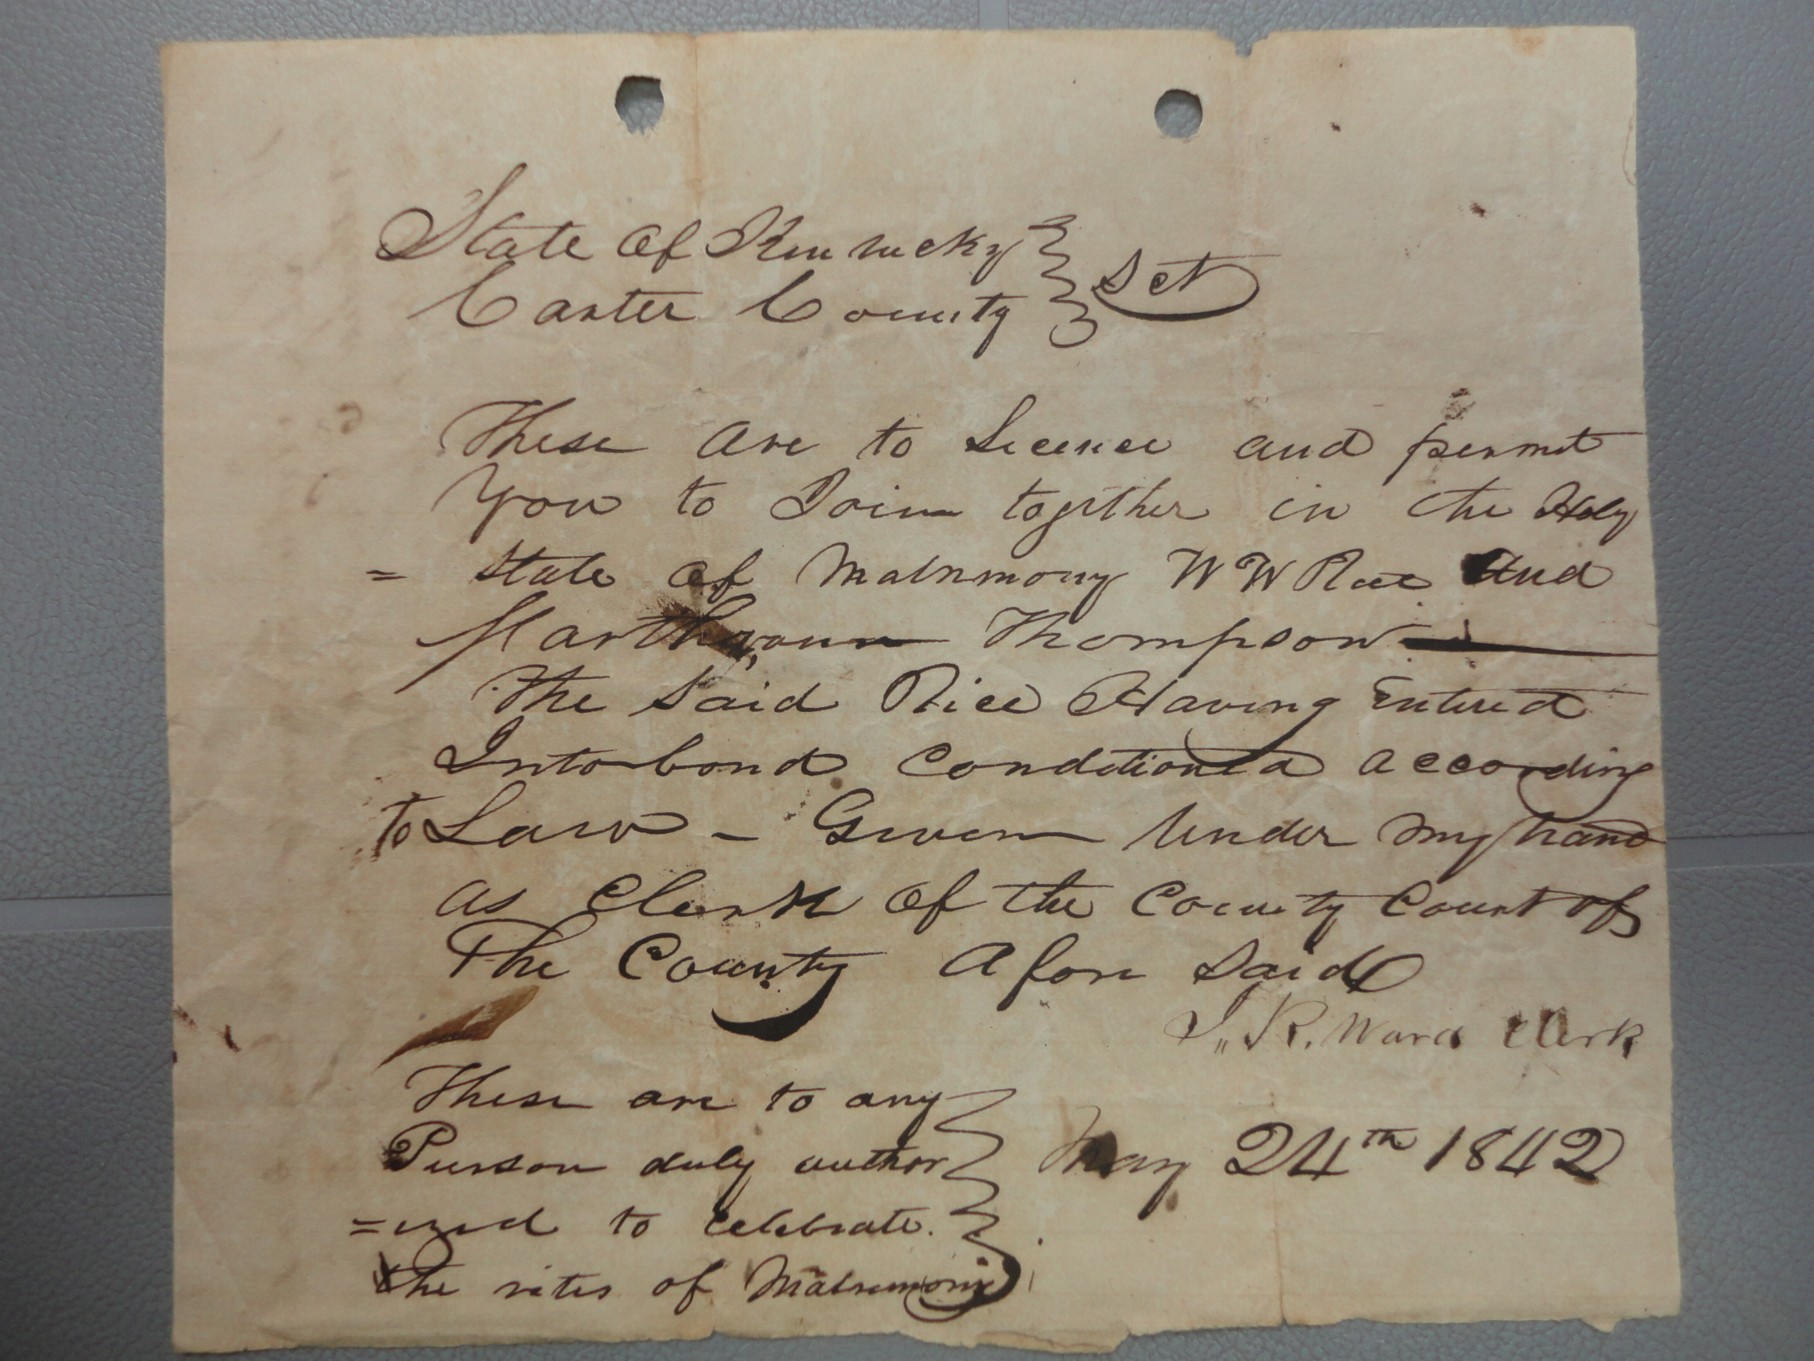 State of Kentucky
Carter County } Sct
These are to Licence and permit
You to Join together in the Holy
= State of Matrimony W W Rice And
Marthyann Thompson
The Said Rice Having Entered
Into bond Conditioned according
to Law – Given Under my hand
as Clerk of the County Court of
The County Afore Said
J. R. Ward Clerk
These are to any
Purson duly author
=ized to celebrate.
the rites of Matrimony
May 24th 1842